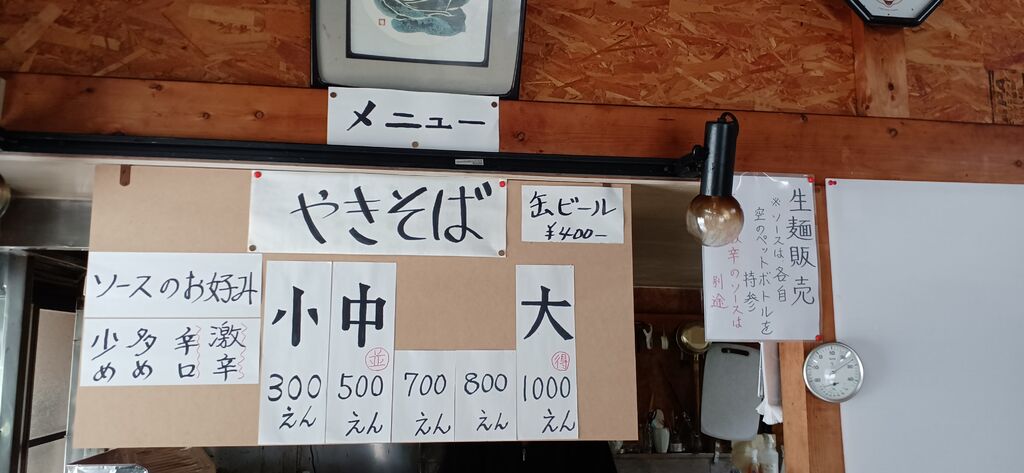 メニュー
やきそば
缶ビール
¥400-
ソースのお好み
少め
多め
辛口
激辛
小
300
えん
中
並
500
えん
700
えん
800
えん
大
得
1000
えん
生麺販売
※ソースは各自
空のペットボトルを
持参
辛のソースは
別途